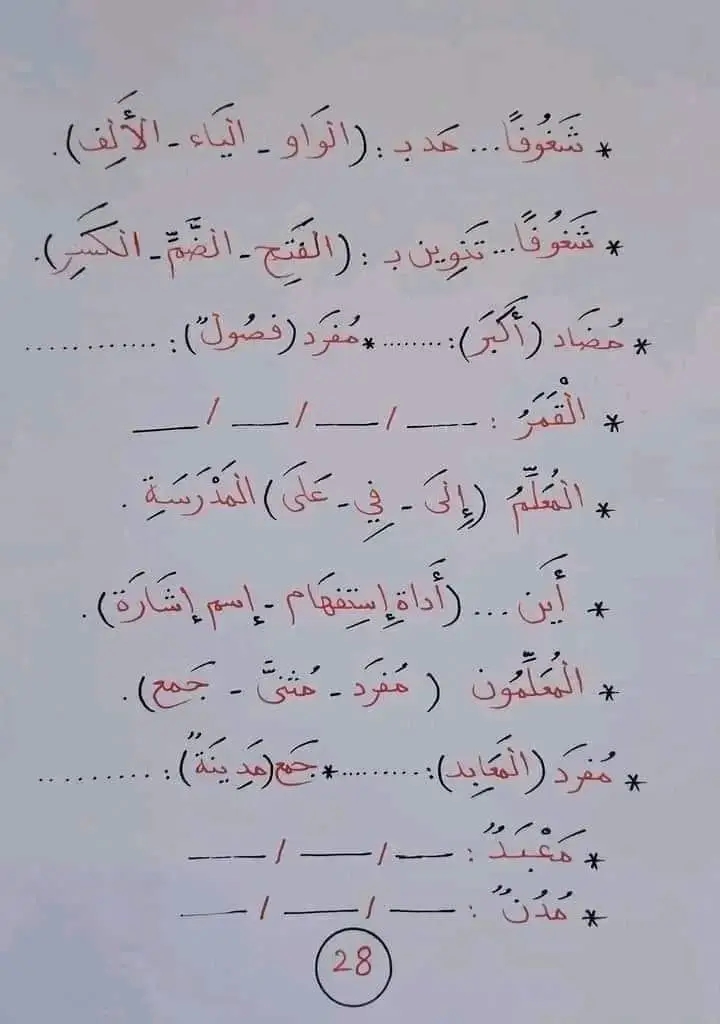 * شَغُوفًا... مَد بـ : (الوَاو - اليَاء - الأَلِف).
* شَغُوفًا... تَنوِين بـ : (الفَتِح - الضَّمِّ - الكَسِر).
* مُضَاد (أَكبَر):........ * مُفرَد (فصُولٌ): ............
* الْقَمَرُ : ___ / ___ / ___ / ___
* المُعَلِّمُ (إِلىَ - فِي - عَلىَ) المَدْرَسَةِ .
* أَين ... (أَداة إِستِفهَام - إِسم إِشَارَة).
* المُعَلِّمُون ( مُفرَد - مُثنىَّ - جَمع).
* مُفرَد (المَعَابِد): ......... * جَمع (مَدِينَةٌ): ............
* مَعْبَدٌ : ___ / ___ / ___
* مُدُنٌ : ___ / ___ / ___
28